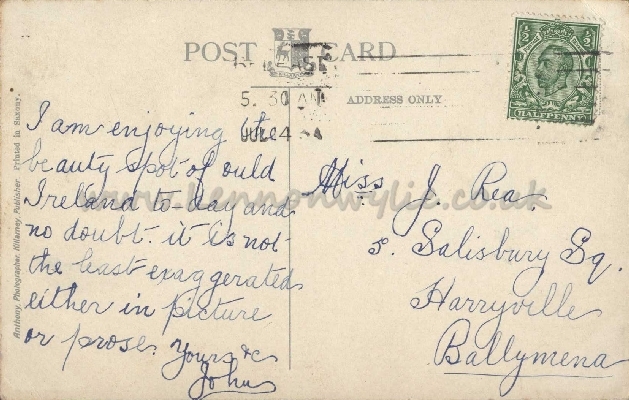 POST CARD
5. 30 AM
JUL 4
ADDRESS ONLY
½ ½
HALFPENNY
I am enjoying the
beauty spot of ould
Ireland to-day and
no doubt. it is not
the least exaggerated
either in picture
or prose. Yours &c
John
Miss J. Rea.
5. Salisbury Sq.
Harryville
Ballymena
Anthony, Photographer, Killarney, Publisher. Printed in Saxony.
www.lennonwylie.co.uk